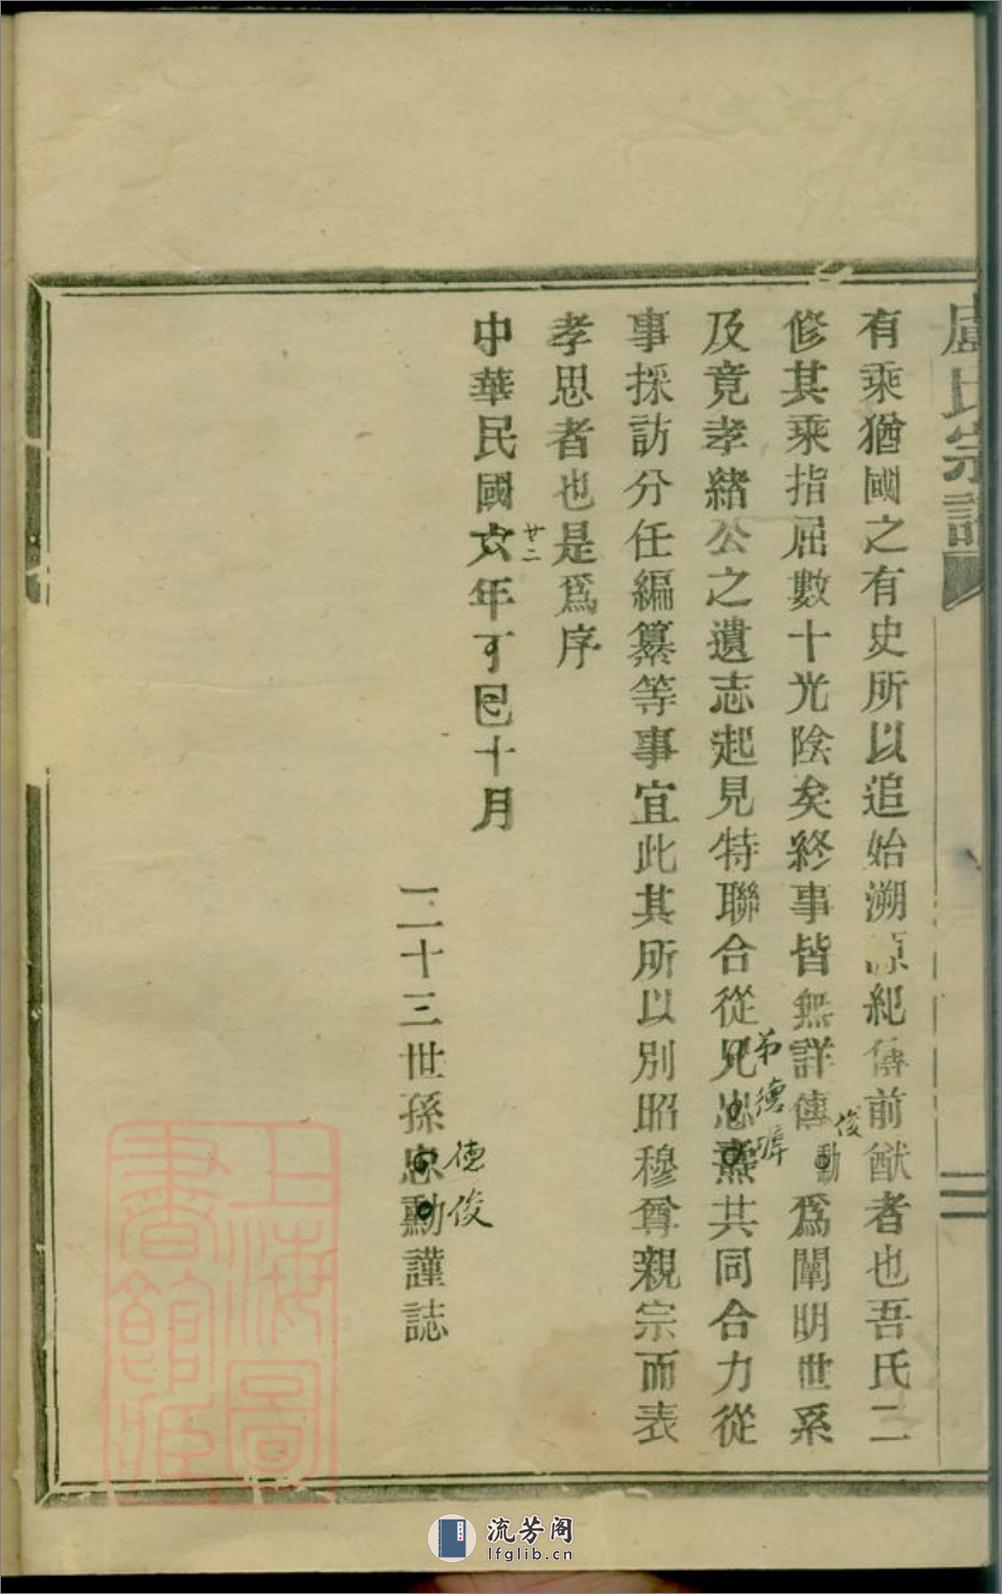 盧氏宗譜
有乘猶國之有史所以追始溯源紀傳前猷者也吾氏二
修其乘指屈數十光陰矣終事皆無詳傳勳爲闡明世系
俊
及竟孝緒公之遺志起見特聯合從兄忠燕共同合力從
弟德
事採訪分任編纂等事宜此其所以別昭穆尊親宗而表
孝思者也是爲序
廿二
中華民國六年丁巳十月
德俊
二十三世孫忠勳謹誌
上海圖書館藏
流芳阁
lfglib.cn